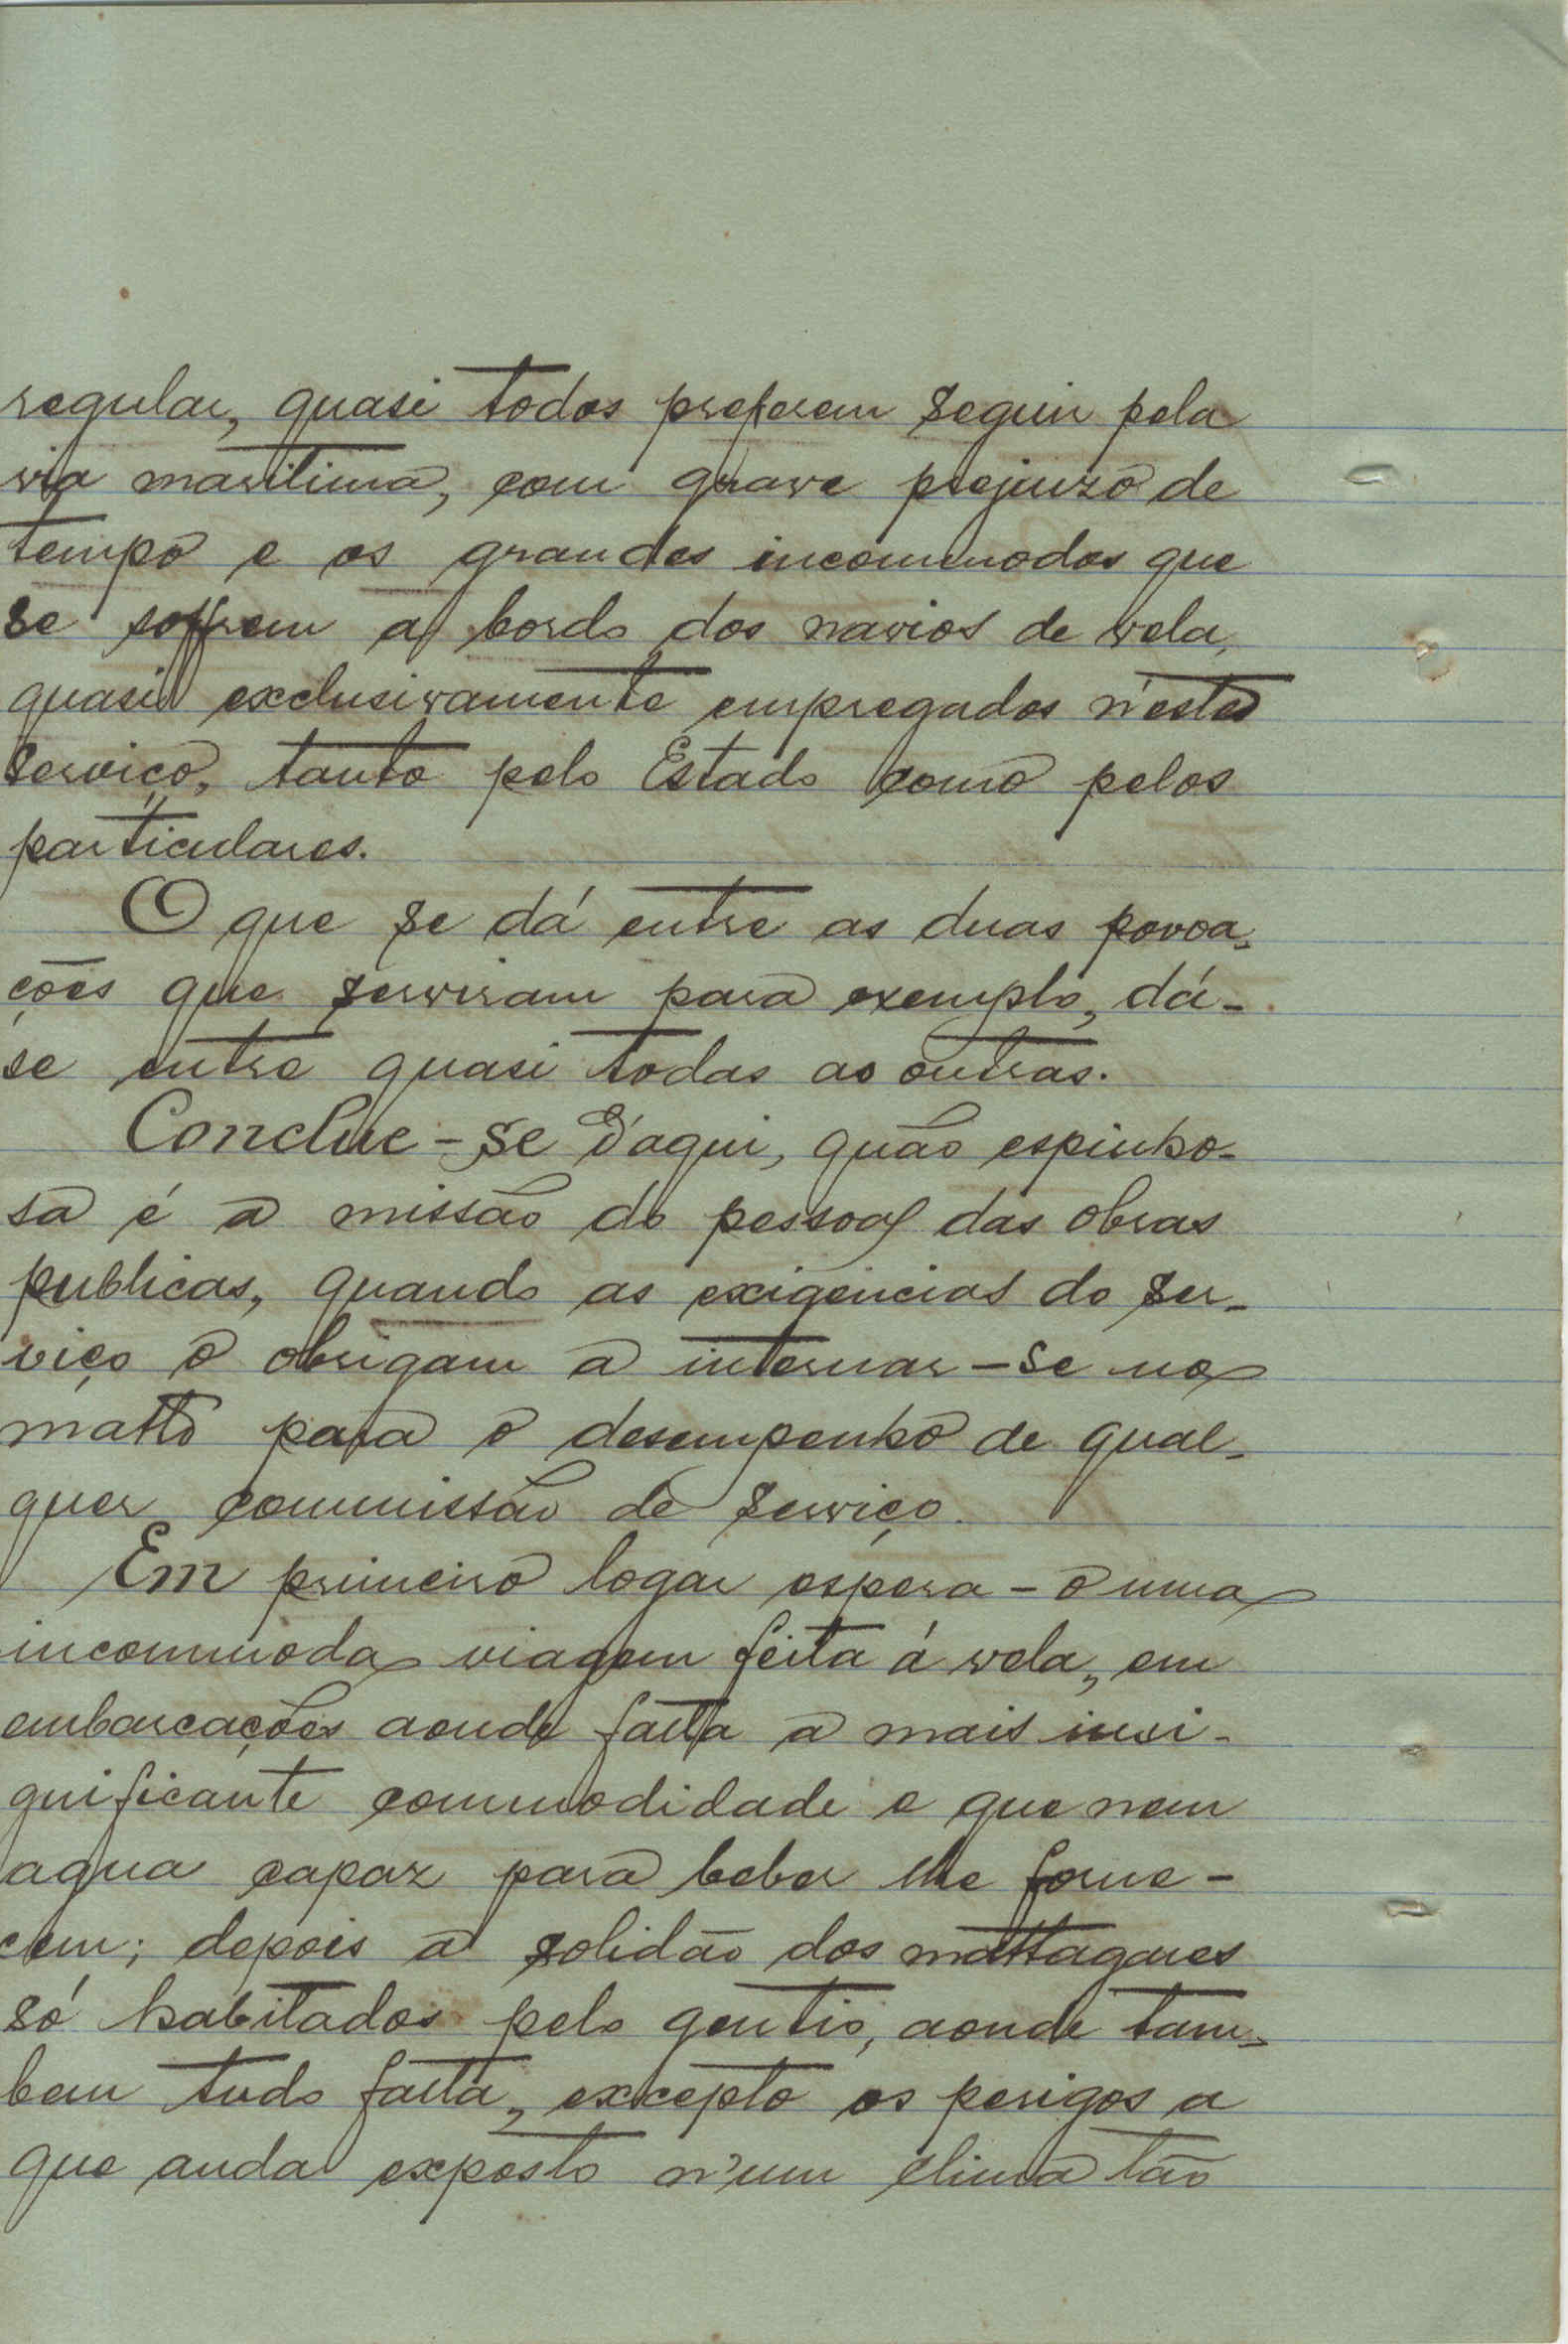 regular, quasi todos preferem seguir pela
via maritima, com grave prejuizo de
tempo e os grandes incommodos que
se soffrem a bordo dos navios de vela,
quasi exclusivamente empregados n'este
serviço, tanto pelo Estado como pelos
particulares.
O que se dá entre as duas povoa-
ções que serviram para exemplo, dá-
se entre quasi todas as outras.
Conclue-se d'aqui, quão espinho-
sa é a missão do pessoal das obras
publicas, quando as exigencias do ser-
viço o obrigam a internar-se no
matto para o desempenho de qual-
quer commissão de serviço.
Em primeiro logar espera-o uma
incommoda viagem feita á vela, em
embarcações aonde falta a mais insi-
gnificante commodidade e que nem
agua capaz para beber lhe forne-
cem; depois a solidão dos mattagaes
só habitados pelo gentio, aonde tam-
bem tudo falta, excepto os perigos a
que anda exposto n'um clima tão